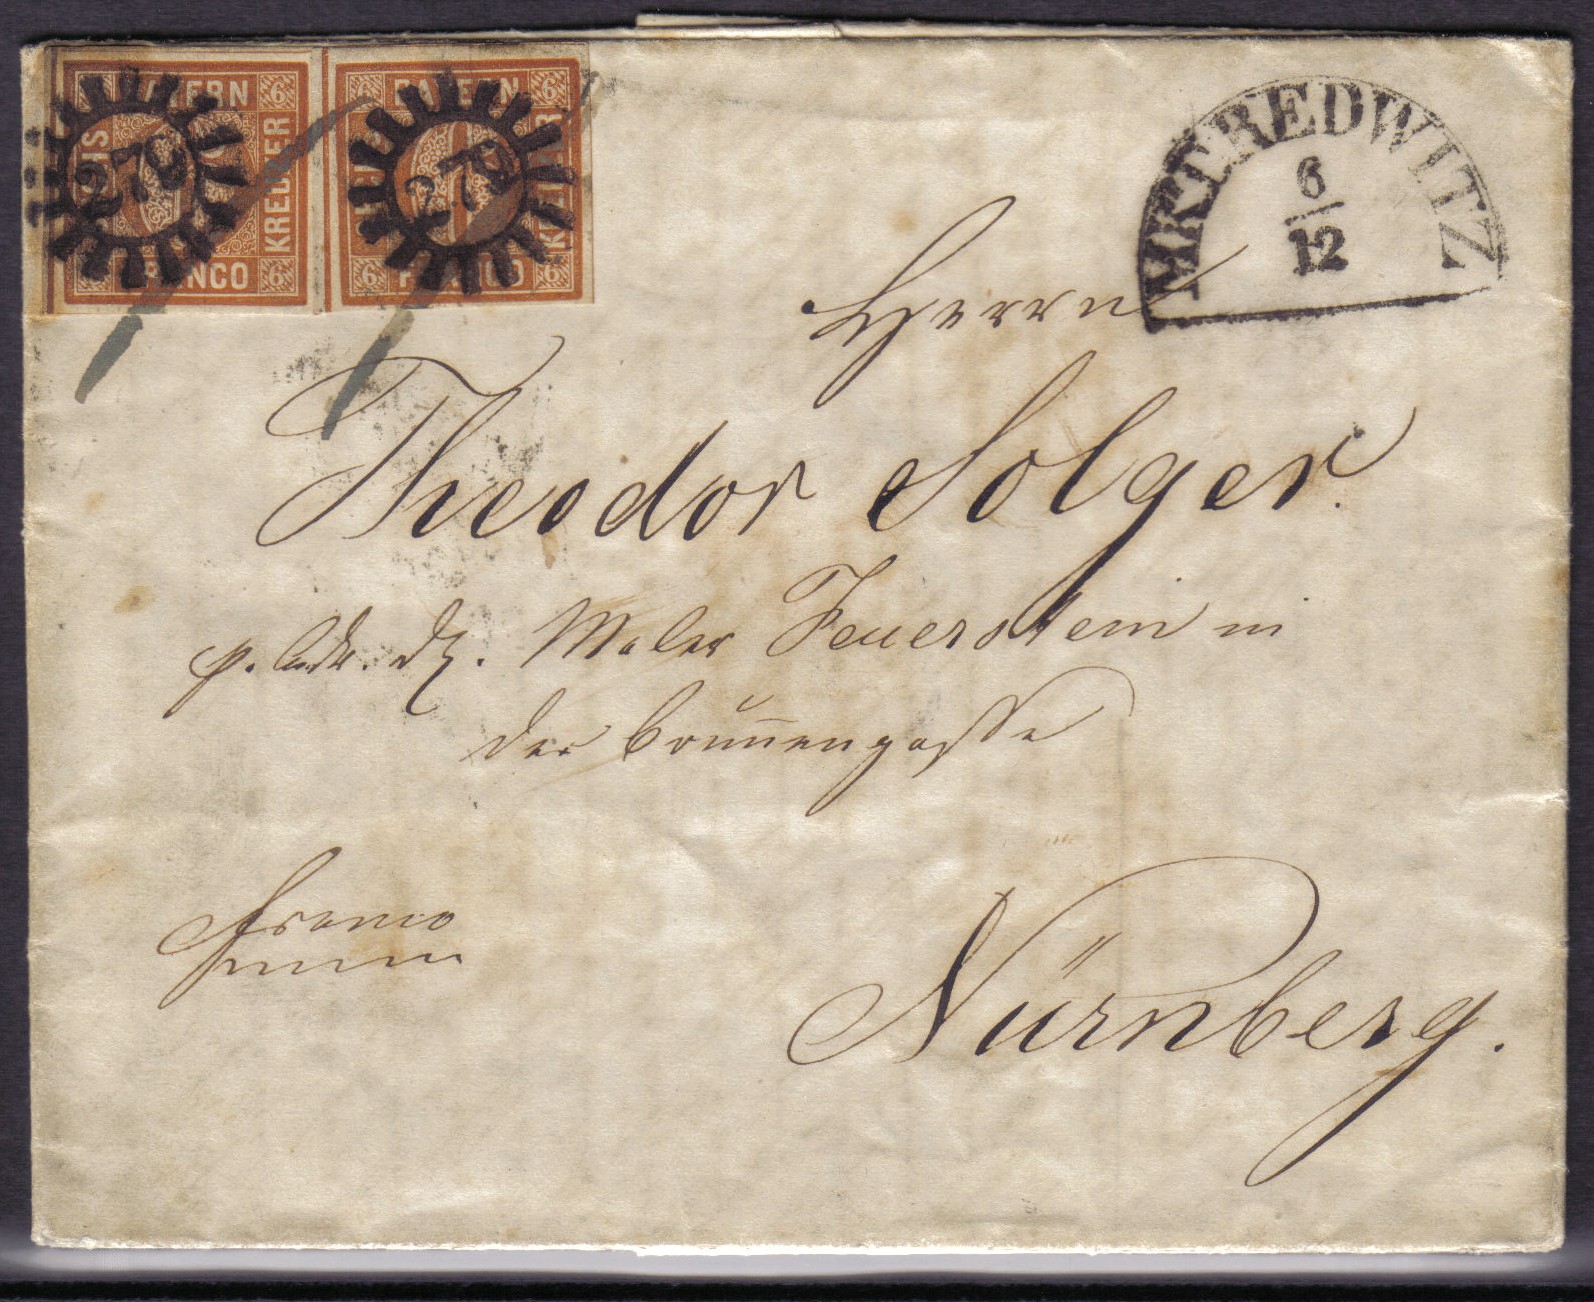 BAYERN
6 6
SECHS KREUZER
FRANCO
6 6
279
BAYERN
6 6
SECHS KREUZER
FRANCO
6 6
279
MKT.REDWITZ
6
12
Herrn
Theodor Solger.
p. Adr. Maler Feuerstein in
der Brun̄engasse
franco
Nürnberg.